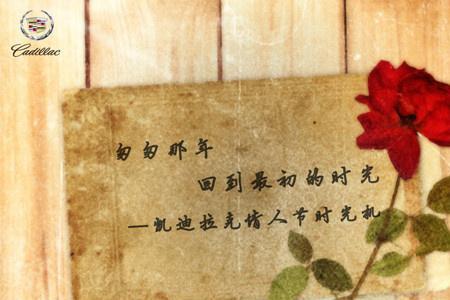 Cadillac
匆匆那年
回到最初的时光
—凯迪拉克情人节时光机